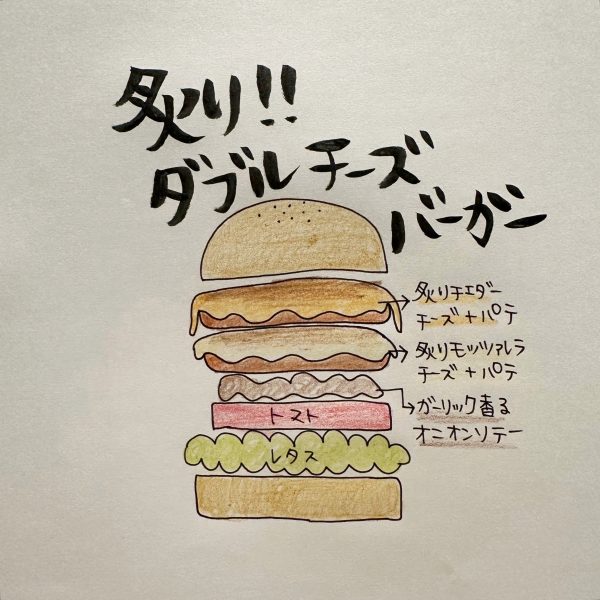 炙り!!
ダブルチーズ
バーガー
炙りチェダー
チーズ+パテ
炙りモッツァレラ
チーズ+パテ
ガーリック香る
オニオンソテー
トマト
レタス